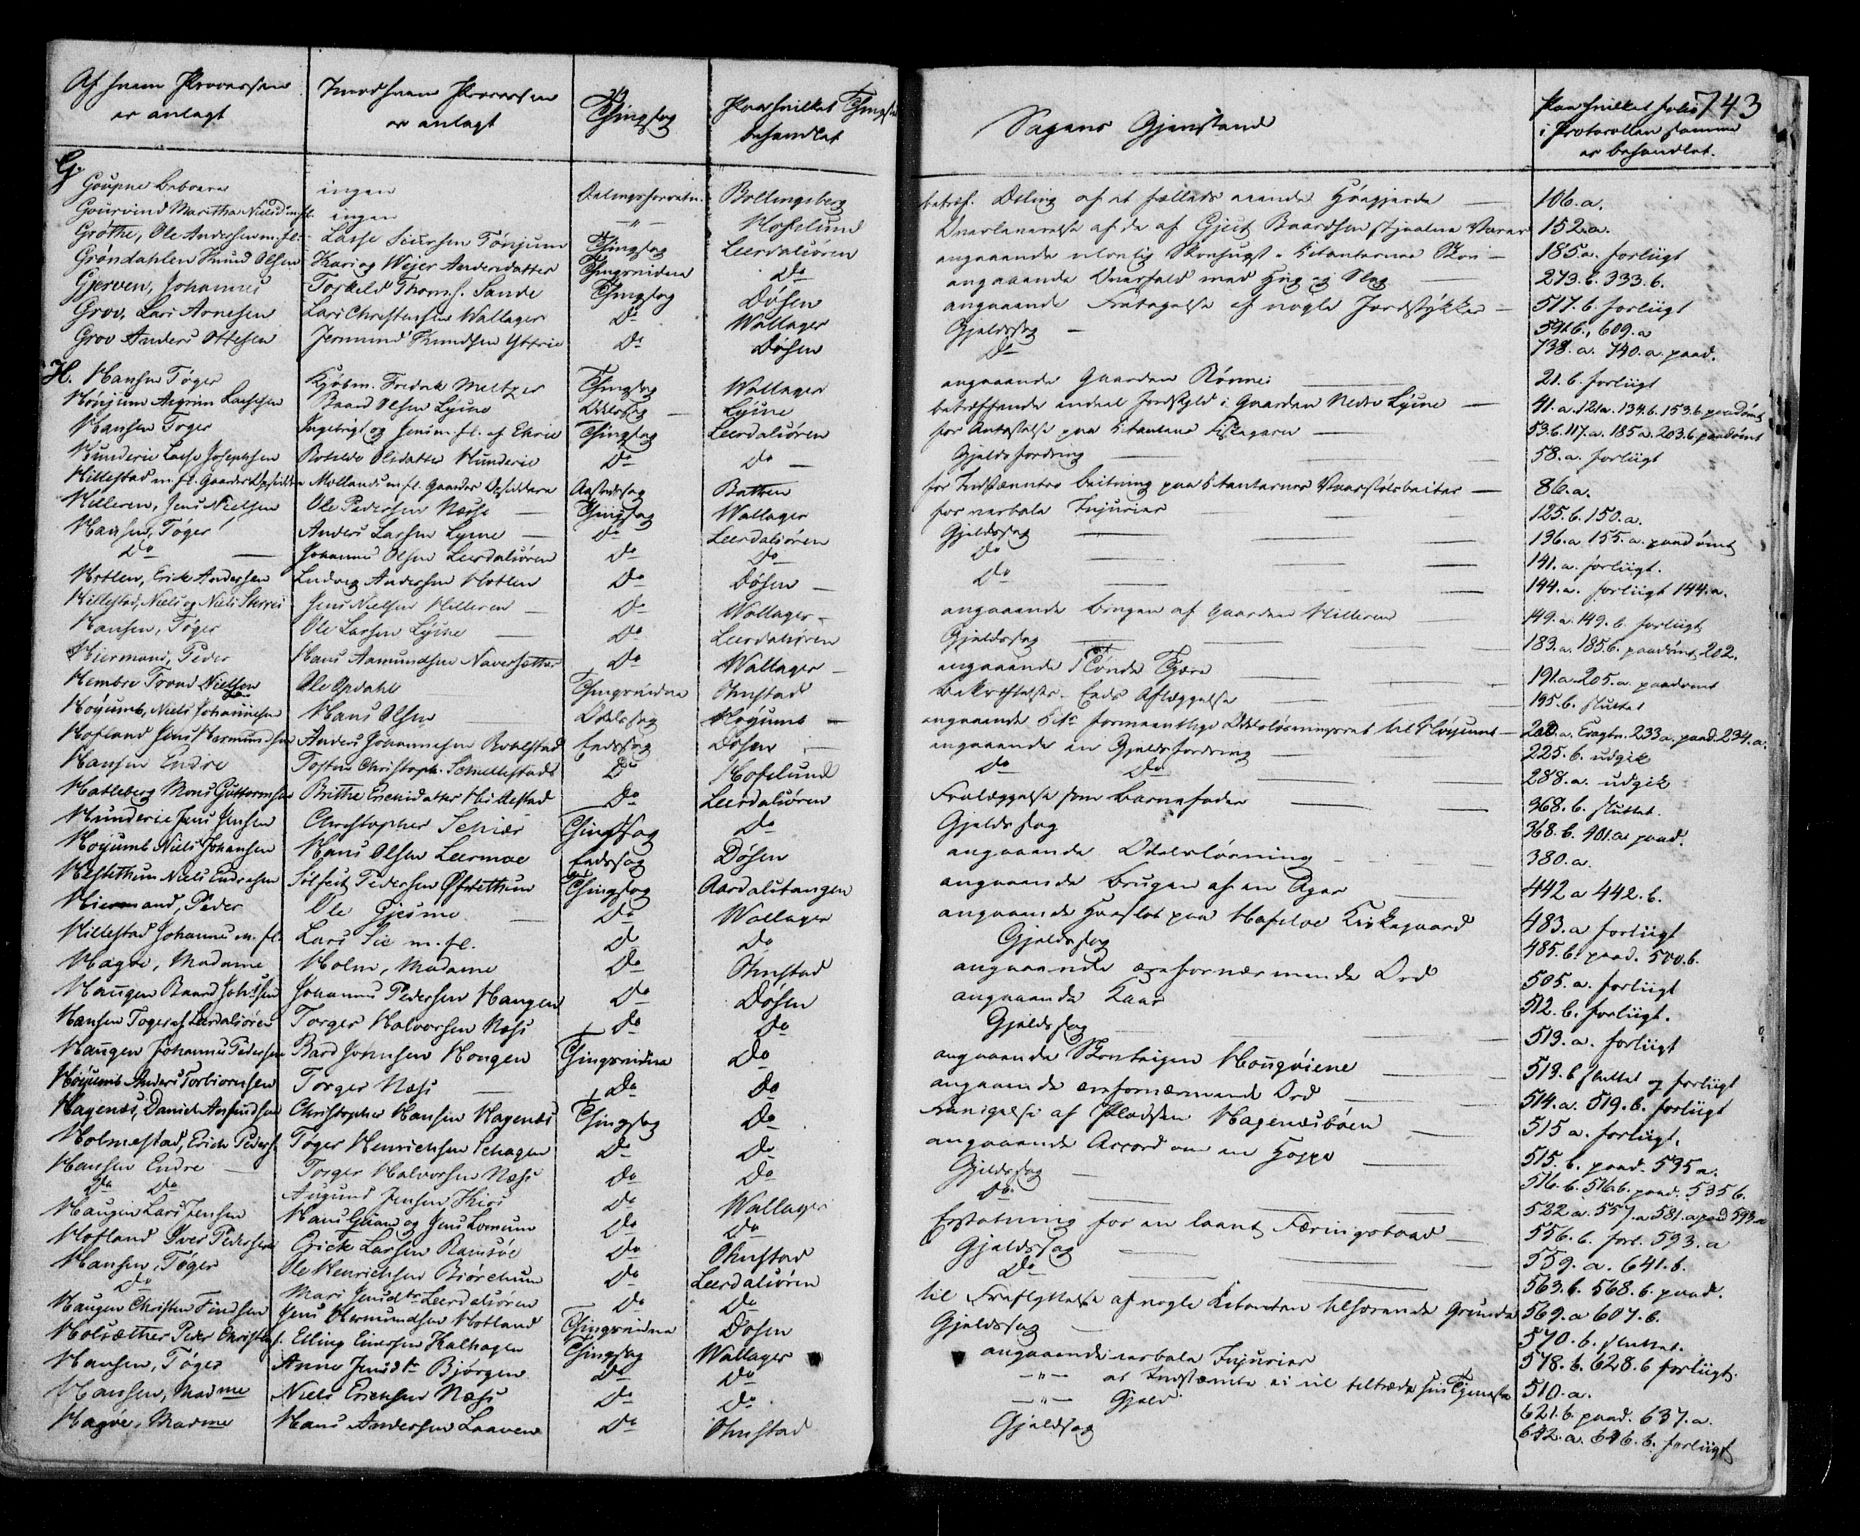 743
Af hvem Processen er anlagt | Imod hvem Processen er anlagt | Thingsag | Paa hvilket Thingsted behandlet | Sagens Gjenstand | Paa hvilket folio i Protocollen samme er behandlet.
G
Goupne Beboere | ingen | Delingsforretn. | Bollingsberg | betref. Deling af et fælleds eiende | 106. a.
ingen | " | Hofslund | 152. a.
Grøthe, Ole Andersen m. fl. | Lasse Siursen Tønjum | Thingsag | Leerdalsören | angaaende ulovlig Skovhugst i Citanternes Skov | 185. a. forliigt
Grøndahlen Knud Olsen | Kari og Andersdatter | Thingsvidne | Do | angaaende Overfald med Hug og Slag | 273. b. 333. b.
Gjerven, Johannes | Torkild Thoms. Sande | Thingsag | Døsen | angaaende Fratagelse af nogle Jordstykker | 517. b. forliigt
Grov, Lars Arnesen | Lars Christensen Wallager | Do | Wallager | Gjeldssag | 609. a
Grov Anders Ottesen | Jermund Knudsen Yttrie | Do | Døsen | Do | 738. a. 740. a. paad.
H. Hansen Tøger | Kjøbm. Fredrik Meltzer | Thingsag | Wallager | angaaende Gaarden Rønnei | 21. b. forliigt
Baard Olsen Lysne | Odelssag | Lysne | betræffende endeel Jordskyld i Gaarden Nedre Lysne | 41. a. 121a. 134. b. 153. b paadømt
Hansen Tøger | Thingsag | Leerdalsören | for Antastelse paa Citantens | 53. b. 117. a. 185 a. 203. b paadømt
Hunderie Lasse Josephsen | Botilde Olsdatter Hunderie | Do | Do | Gjelds fordring | 58. a. forliigt
Hillestad m. fl. Gaarders Opsiddere | Mollands m. fl. Gaarders Opsiddere | Aastedssag | Batten | for beitning paa Citanternes | 86. a.
Hilleren, Jens Nielsen | Ole Pedersen Næsse | Thingsag | Wallager | for verbale Injurier | 125. b. 150. a.
Hansen, Tøger | Anders Larsen Lysne | Do | Leerdalsören | Gjeldssag | 136. a 155. a. paadømt
Do | Johannes Olsen Leerdalsören | Do | Do | Do | 141. a. forliigt.
Hotlen, Erick Andersen | Ludvig Andersen Hotlen | Do | Døsen | Do | 144. a. forliigt 144. a.
Hillestad, Niels og Niels | Jens Nielsen Hilleren | Do | Wallager | angaaende brugen af Gaarden Hilleren | 149. a. 149. b. forliigt
Hansen, Tøger | Ole Larsen Lysne | Do | Leerdalsören | Gjeldssag | 183. a. 185. b. paadømt 202.
Hiermand, Peder | Hans Aamundsen | Do | Wallager | angaaende 1 Tønde Tjære | 191. a. 205. a. paadømt
Hembre Trond Nielsen | Ole Opdahl | Thingsvidne | Sthnstad | Eeds Aflæggelse | 195. b. sluttet
Høyumb, Niels Johannesen | Hans Olsen | Odelssag | Høyumb | angaaende Cit. formeentlige Odelsløsningsret til Høyumb | 233 a. paad. 234. a.
Hofland Jens Hermundsen | Anders Johannesen | Eedssag | Døsen | angaaende en Gjeldsfordring | 225. b. udgik
Hansen Endre | Tosten Christoph. | Do | Hofslund | Do Do | 288. a. udgik
Hatleberg Mons Guttormsen | Brithe Ericksdatter | Do | Leerdalsören | Fralæggelse som barnefader | 368. b. sluttet.
Hunderie Jens Jensen | Christopher Schiær | Thingsag | Do | Gjelds sag | 368. b. 401. a. paad.
Høyumb Niels Johansen | Hans Olsen Leermoe | Eedssag | Døsen | angaaende Odelsløsning | 380. a.
Niels Endresen | Sølfest Pedersen Øfstethun | Thingsag | Aardalstangen | angaaende brugen af en Ager | 442 a 442. b.
Hiermand, Peder | Ole Gjesme | Do | Wallager | angaaende paa Hafsloe Kirkegaard | 483. a forliigt
Hillestad Johannes m. fl. | Lars m. fl. | Do | Do | Gjeldssag | 485. b. paad. 500. b.
Hagøe, Madame | Holm, Madame | Do | Sthnstad | angaaende ærefornærmende Ord | 505. a. forliigt
Haugen Baard Johnsen | Johannes Pedersen Haugen | Do | Døsen | angaaende Kaar | 512. b. forliigt.
Hansen Tøger af Leerdalsören | Torger Halvorsen Næss | Do | Do | Gjeldssag | 513. a. forliigt
Haugen Johannes Pedersen | Bard Johnsen Hougen | Thingsvidne | Do | angaaende Skovteigen Hougøiene | 513. b sluttet og forliigt
Høyumb Anders Torbiornsen | Torger Næss | Do | Do | angaaende ærefornærmende Ord | 514. a. 519. b. forliigt
Hagenæs, Daniel Aamundsen | Christopher Hansen Hagenæs | Thingsag | Do | Fravigelse af Pladsen Hagenæsbøen | 515 a. forliigt.
Holmestad, Erick Peders. | Tøger Henrichsen Schagen | Do | Do | angaaende Accord om en Hoppe | 515. b. paad. 535 a.
Hansen Endre | Torger Halvorsen Næss | Do | Do | Gjeldssag | 516. b. 516b. paad. 535 b.
Do Do | Augund Jensen | Do | Wallager | Do | 522. a. 557. a 581. a paad 593. a
Haugen Lars Jensen | Hans og Jens | Do | Do | Erstatning for en laant Færingsbaad | 556. b. forl. 593. a
Hofland Iver Pedersen | Erick Larsen | Do | Sthnstad | Gjeldssag | 559. a. 641. b.
Hansen, Tøger | Ole Henrichsen Biørchum | Do | Leerdalsören | Do | 563. b. 568. b. paad.
Do | Mari Jensdtr Leerdalsören | Do | Do | til Fraflyttelse af nogle Citanten tilhørende Grunde | 569. a 607. b.
Haugen Christen Findsen | Jens Hermundsen Hofland | Thingsvidne | Døsen | Gjeldssag | 570. b. sluttet.
Holsæther Peder Christofs. | Elling Einersen Kalhagen | Thingsag | Wallager | angaaende verbale Injurier | 578. b. 628. b forliigt.
Hansen, Tøger | Anne Jensdtr Bjørgen | Do | Do | " at Indstævnte ei vil tiltræde sin Tjeneste | 510. a.
Hansen, Madme | Niels Ericksen Næss | Do | Do | " Gjeld | 621. b. paad. 637. a.
Hagøe, Madme | Hans Andersen Laaven | Do | Sthnstad | Gjeldssag | 642. a. 646. b. forliigt